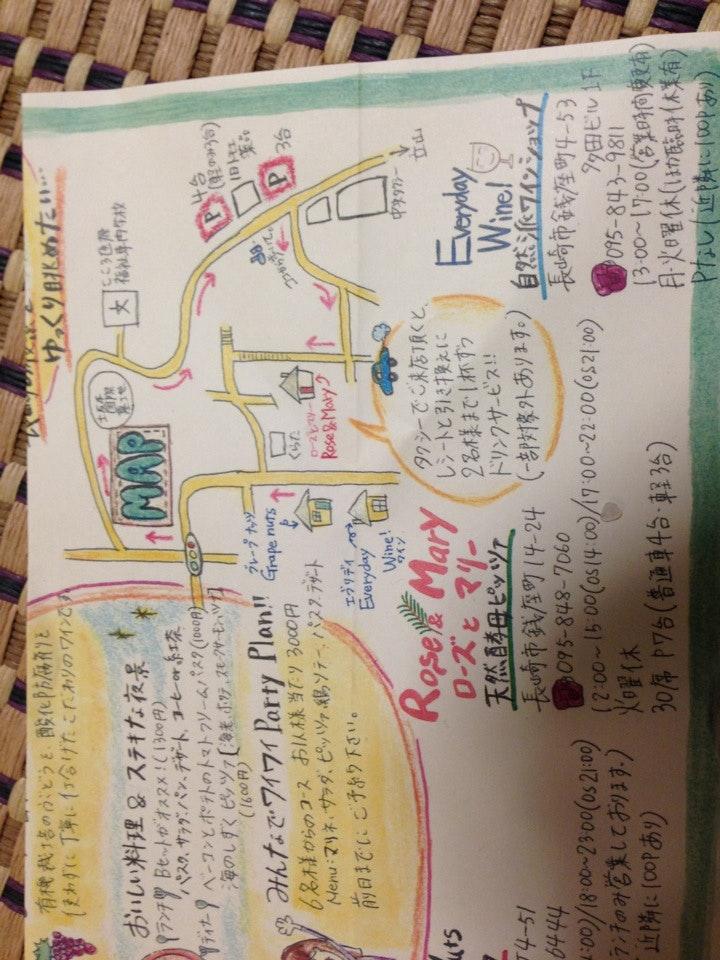 ゆっくり眺めたい…
有機栽培のぶどうと、酸化防腐剤を
使わずに丁寧に仕合けたこだわりのワインです
おいしい料理 & ステキな夜景
ランチ Bセットがオススメ!(1300円)
パスタ、サラダ、パン、デザート、コーヒーor紅茶
ディナー ベーコンとポテトのトマトクリームパスタ(1000円)
海のしずくピッツァ
(1600円)
みんなでワイワイParty Plan!!
6名様からのコース お1人様当たり3000円
Menu:マリネ、サラダ、ピッツァ、鶏ソテー、パスタ、デザート
前日までにご予約下さい。
MAP
こころ医療
福祉専門学校
大
P
4台
(軽のみ3台)
P
3台
立山
くらた
ローズとマリー
Rose&Mary
グレープナッツ
Grape nuts
エブリディ
Everyday
Wine!
ワイン
タクシーでご来店頂くと、
レシートと引き換えに
2名様まで1杯ずつ
ドリンクサービス!!
(一部対象外あります。)
Everyday
Wine!
自然派ワインショップ
長崎市銭座町4-53
多田ビル1F
095-843-9811
13:00~17:00(営業時間変更有)
月・火曜休(ほか臨時休業有)
Pなし(近隣に100Pあり)
Rose & Mary
ローズとマリー
天然酵母ピッツァ
長崎市銭座町14-24
095-848-7060
12:00~15:00(OS14:00)/17:00~22:00(OS21:00)
火曜休
30席 P7台(普通車4台・軽3台)
uts
町4-51
6444
4:00)/18:00~23:00(OS21:00)
ランチのみ営業しております。)
(近隣に100Pあり)